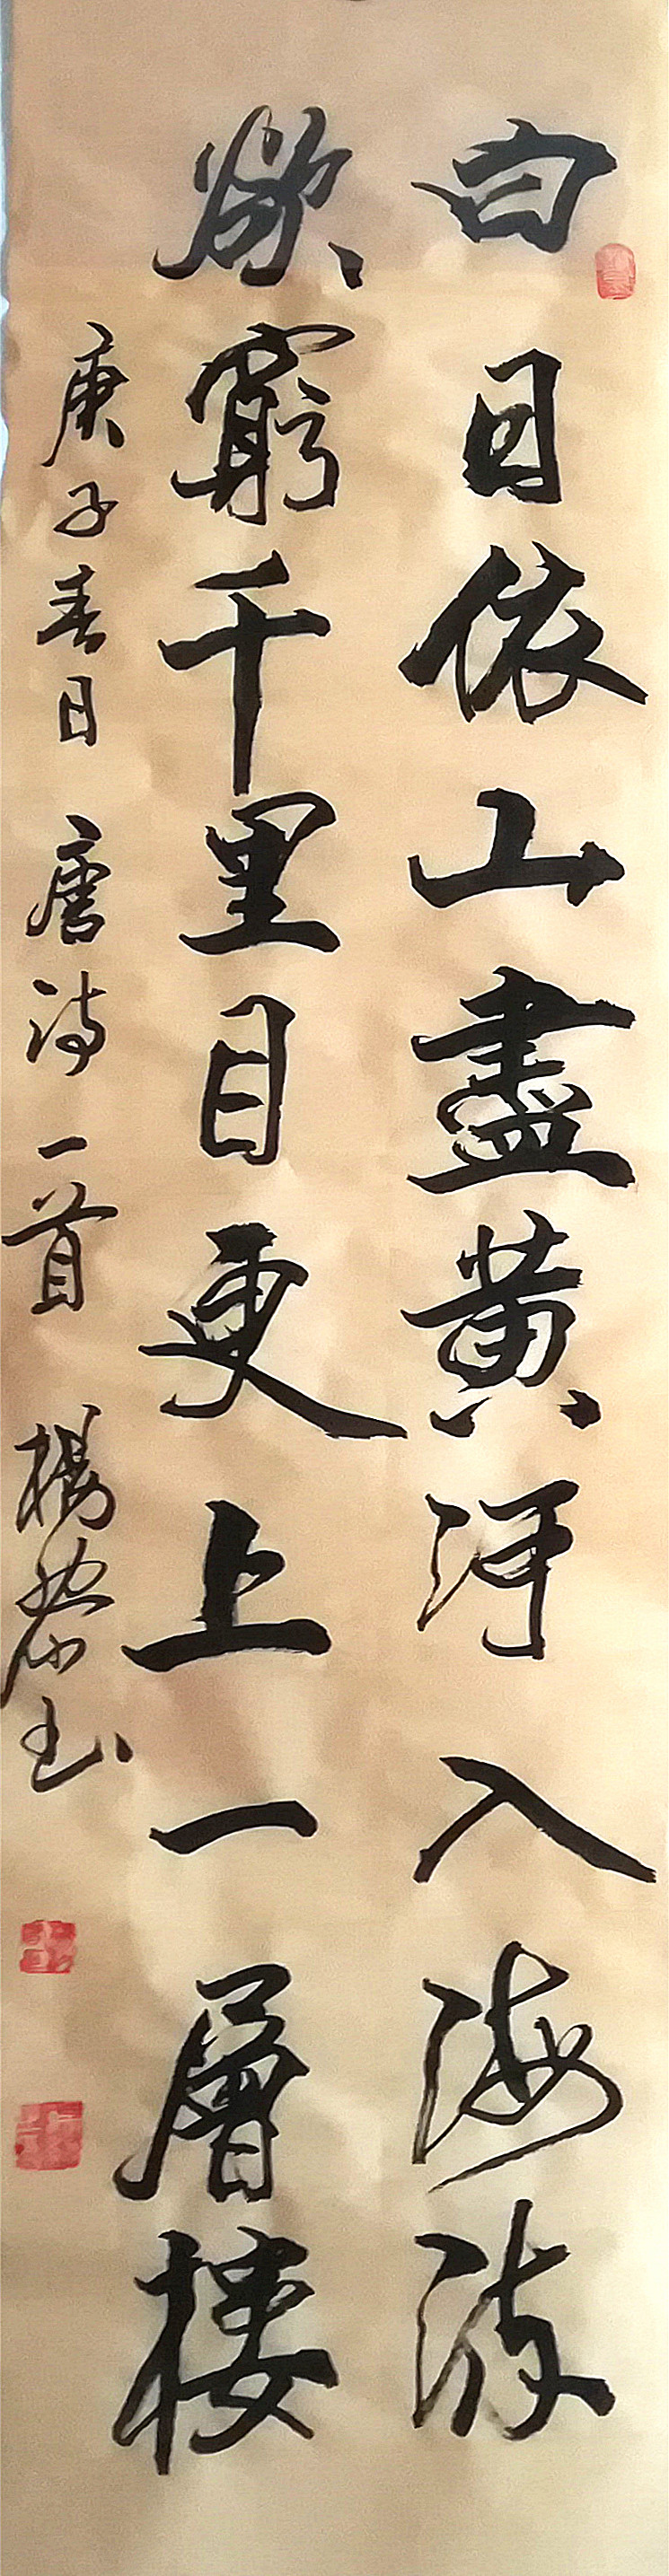 白日依山盡黃河入海流
欲窮千里目更上一層樓
庚子春日 唐詩一首 楊榮玉